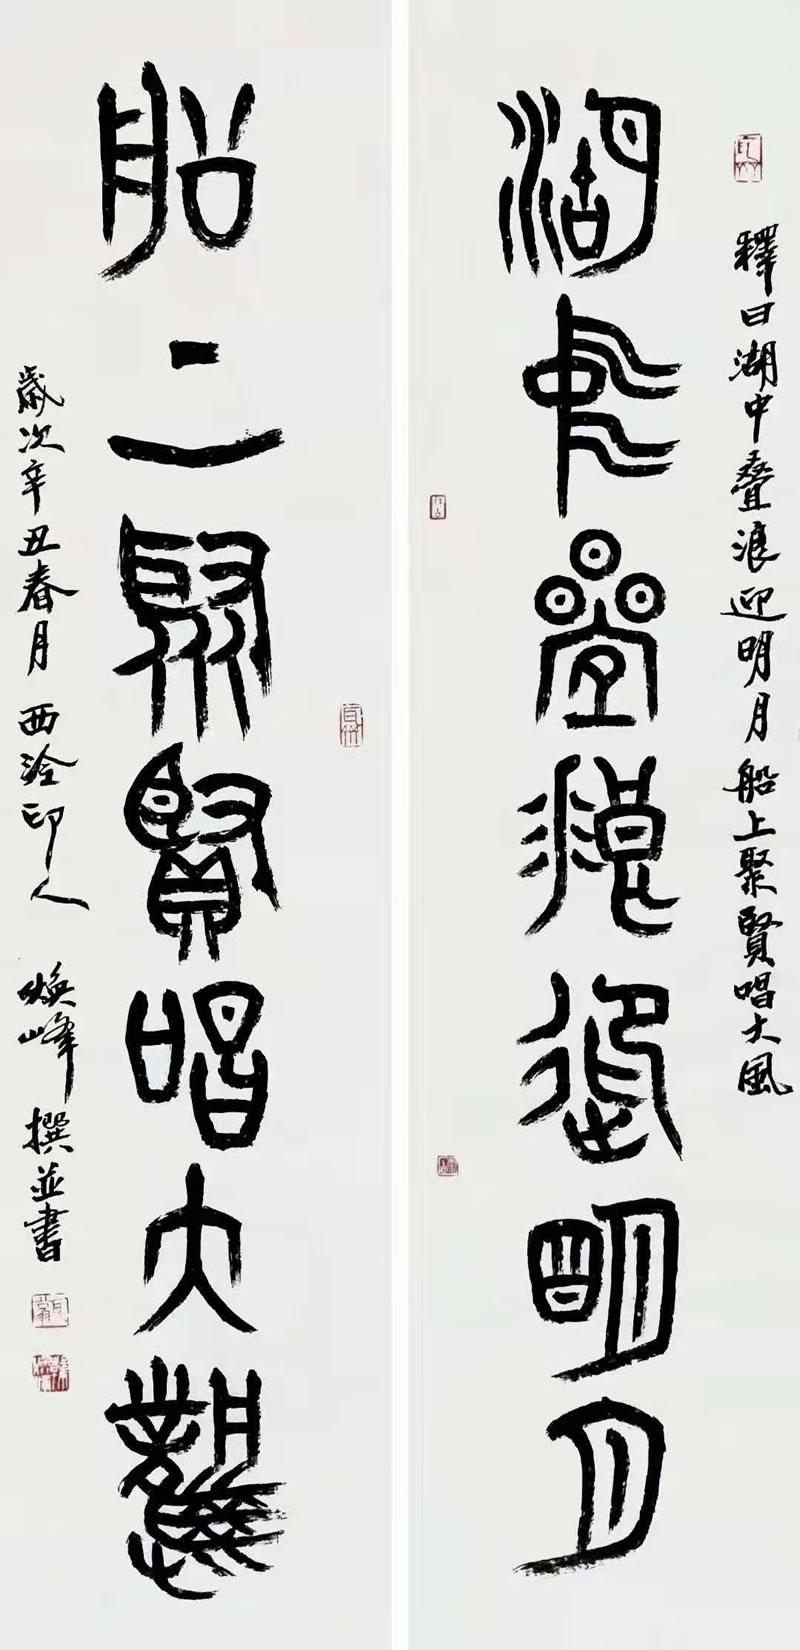 釋曰湖中疊浪迎明月船上聚賢唱大風
湖中疊浪迎明月
船上聚賢唱大風
歲次辛丑春月西泠印人煥峰撰並書